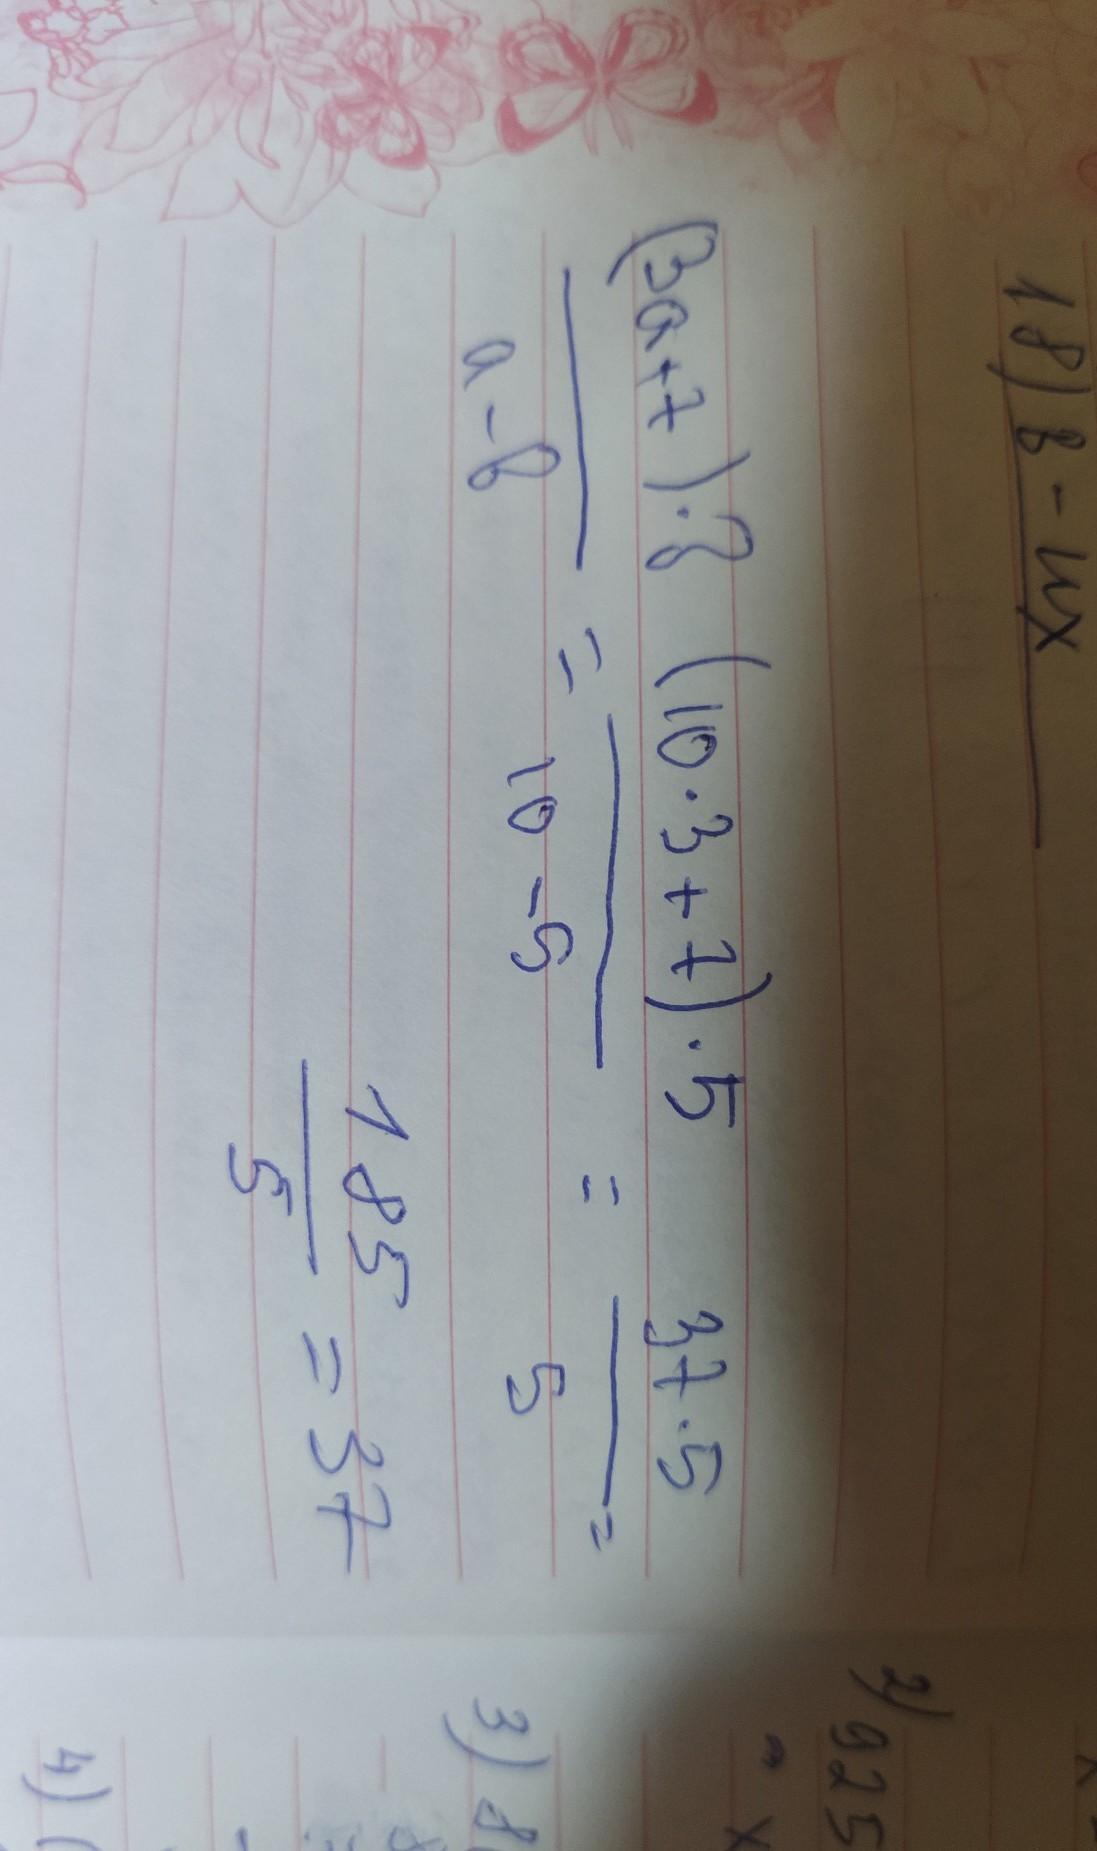 18) в - их
(3a+7)·8 / a-8 = (10·3+7)·5 / 10-5 = 37·5 / 5 =
185 / 5 = 37
2) 925
x
3) 8
4) (